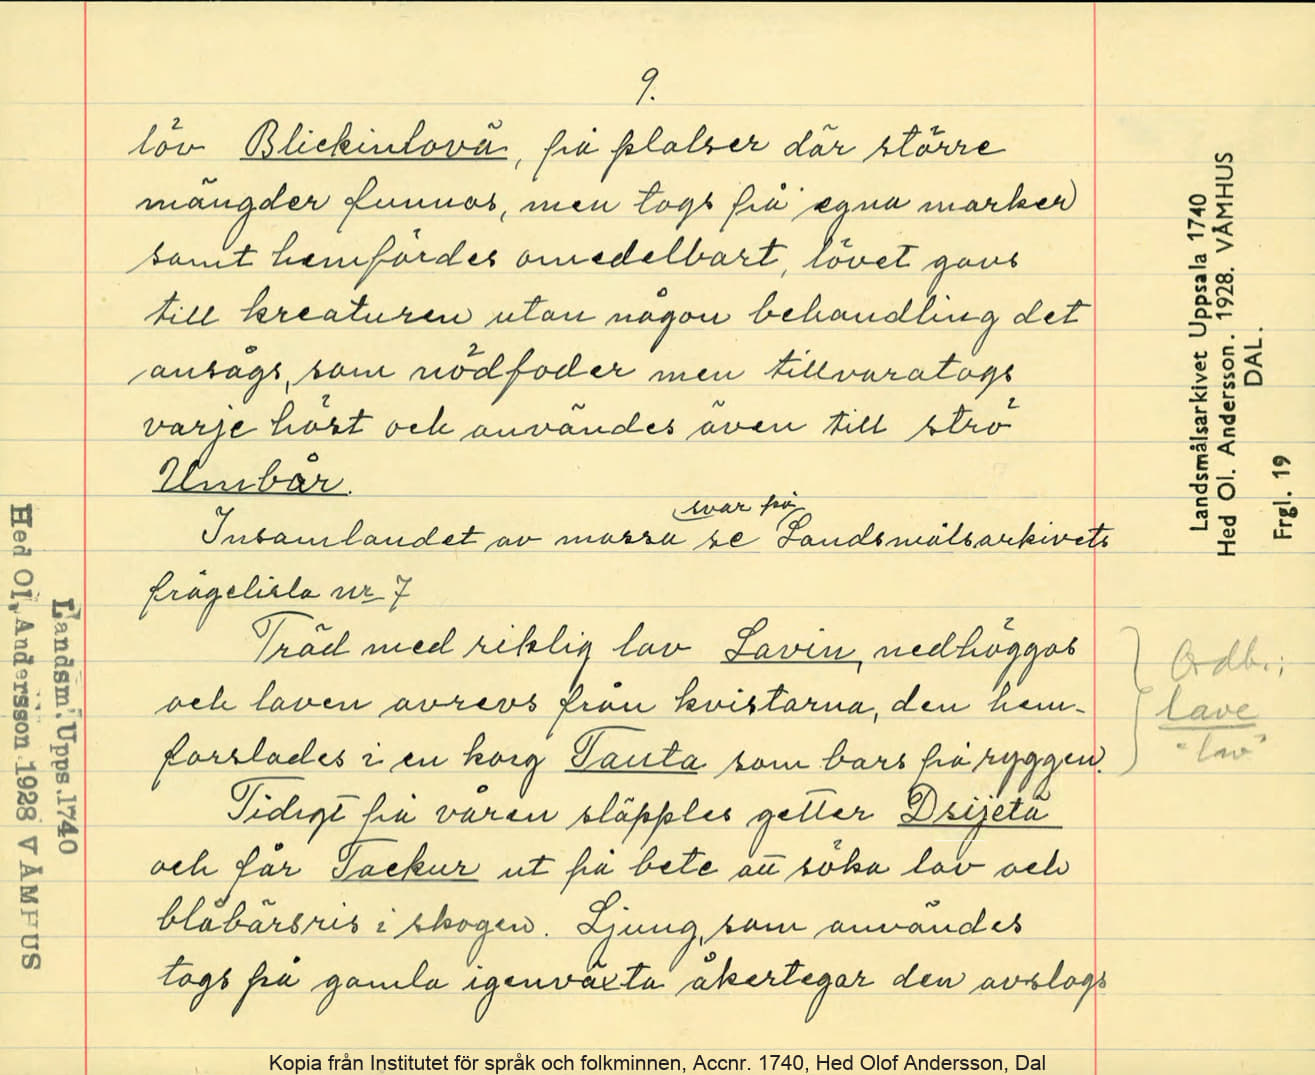 9.
löv Blickinlovä, på platser där större
mängder funnos, men togs på egna marker
samt hemfördes omedelbart, lövet gavs
till kreaturen utan någon behandling det
ansågs, som nödfoder men tillvaratogs
varje höst och användes även till strö
Umbår.
svar på
Insamlandet av massa se Landsmålsarkivets
frågelista nr 7
Träd med riklig lav Lavin, nedhöggos
och laven avrevs från kvistarna, den hem-
forslades i en korg Tauta som bars på ryggen.
Tidigt på våren släpptes getter Dsijetä
och får Tackur ut på bete att söka lav och
blåbärsris i skogen. Ljung, som användes
togs på gamla igenväxta åkertegar den avslogs
Landsmålsarkivet Uppsala 1740
Hed Ol. Andersson. 1928. VÅMHUS
DAL.
Frgl. 19
Ordb.:
lave
"lav"
Landsm. Upps. 1740
Hed Ol, Andersson 1928 VÅMHUS
Kopia från Institutet för språk och folkminnen, Accnr. 1740, Hed Olof Andersson, Dal